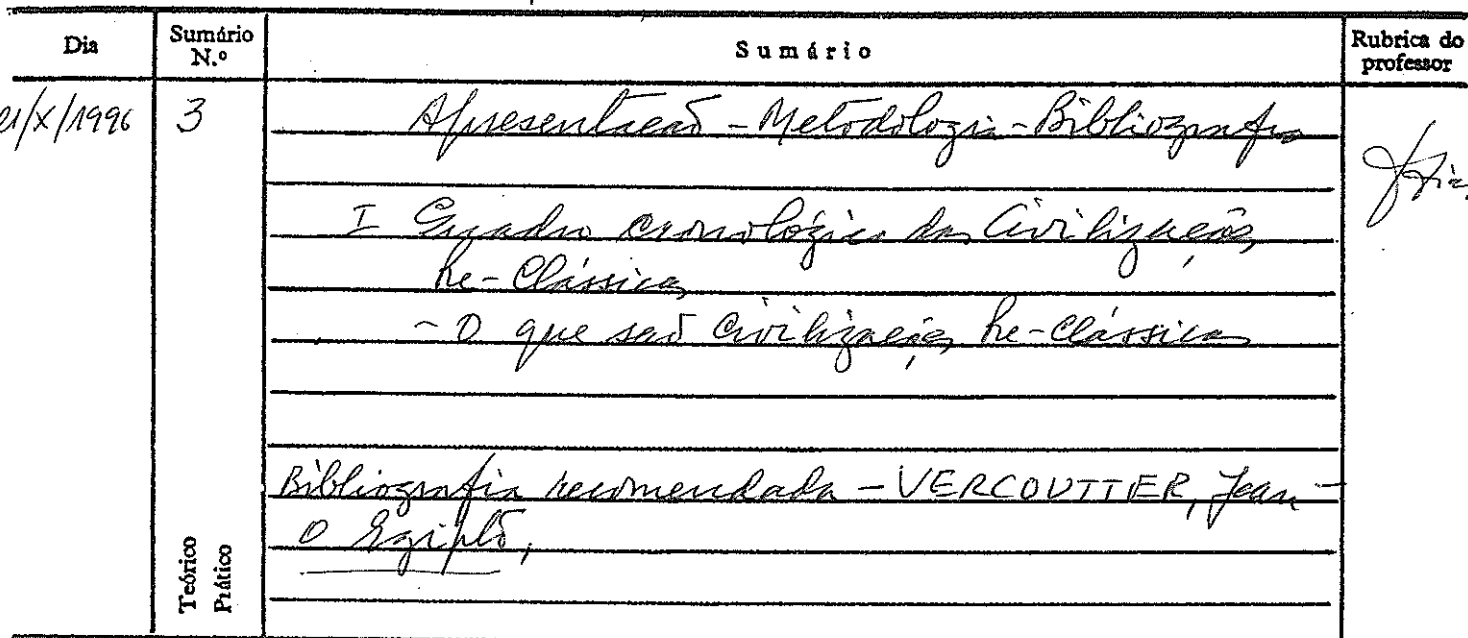 Dia Sumário N.º Sumário Rubrica do professor
21/X/1996 3 Apresentação - Metodologia - Bibliografia
I Quadro cronológico das Civilizações
Pré-Clássicas
- O que são Civilizações Pré-Clássicas
Bibliografia recomendada - VERCOUTTER, Jean -
O Egipto,
Teórico
Prático